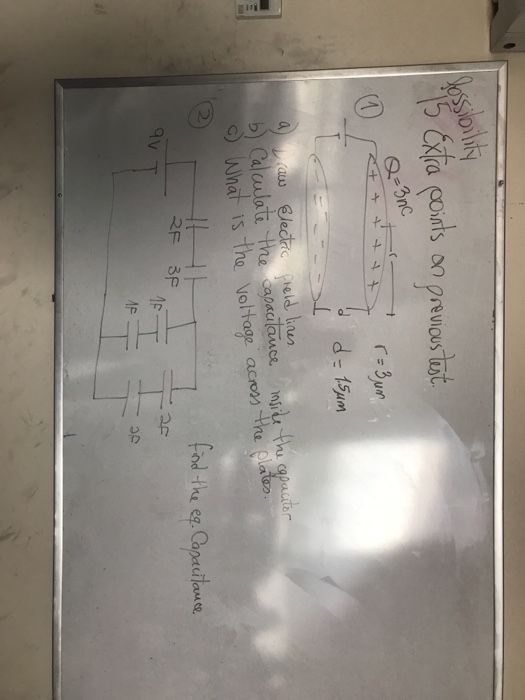 Possibility
15 Extra points on previous test.
①
Q = 3nC
r
r = 3μm
+ + + + + +
- - - - - -
d
d = 15μm
a) Draw electric field lines inside the capacitor
b) Calculate the capacitance
c) What is the voltage across the plates.
②
find the eq. Capacitance
2F 3F
9V
1F 2F
1F 2F